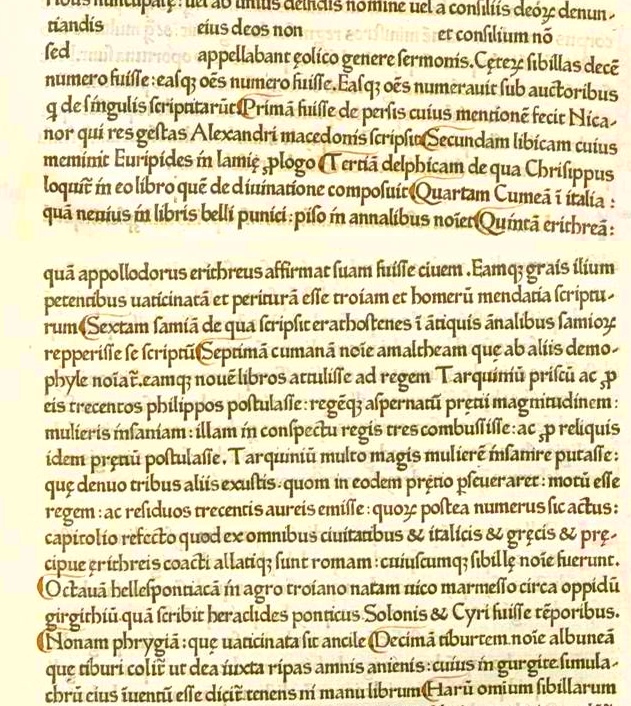 nuncupatę: uel ab unius delindis nomine uel a consiliis deoꝝ denun-
tiandis eius deos non et consilium nō
sed appellabant ęolico genere sermonis. Cęteꝝ sibillas decē
numero fuisse: easqꝫ oēs numero fuisse. Easqꝫ oēs numerauit sub auctoribus
q̄ de singulis scriptitarūt Primā fuisse de persis cuius mentionē fecit Nica-
nor qui res gestas Alexandri macedonis scripsit Secundam libicam cuius
meminit Euripides in lamię ꝓlogo Tertiā delphicam de qua Chrisippus
loquit̄ in eo libro quē de diuinatione composuit Quartam Cumeā ī italia:
quā neuius in libris belli punici: piso in annalibus noīet Quintā erithreā:
quā appollodorus erithreus affirmat suam fuisse ciuem. Eamqꝫ grais ilium
petentibus uaticinatā et perituram esse troiam et homerū mendatia scriptu-
rum Sextam samiā de qua scripsit erathostenes ī ātiquis ānalibus samioꝝ
repperisse se scriptū Septimā cumanā noīe amaltheam quę ab aliis demo-
phyle noīat̄. eamqꝫ nouē libros attulisse ad regem Tarquiniū priscū ac ꝓ
eis trecentos philippos postulasse: regēqꝫ aspernatū pretii magnitudinem:
mulieris insaniam: illam in conspectu regis tres combussisse: ac ꝓ reliquis
idem pretiū postulasse. Tarquiniū multo magis mulierē insanire putasse:
quę denuo tribus aliis exustis: quom in eodem prętio pseueraret: motū esse
regem: ac residuos trecentis aureis emisse: quoꝝ postea numerus sic actus:
capitolio refecto quod ex omnibus ciuitatibus & italicis & gręcis & prę-
cipue ęrithreis coacti allatiqꝫ sunt romam: cuiuscumqꝫ sibillę noīe fuerunt.
Octauā hellespontiacā in agro troiano natam uico marmesso circa oppidū
girgithiū quā scribit heraclides ponticus Solonis & Cyri fuisse tēporibus.
Nonam phrygiā: quę uaticinata sit ancile Decimā tiburtem noīe albuneā
quę tiburi colit̄ ut dea iuxta ripas amnis anienis: cuius in gurgite simula-
chrū eius īuentū esse dicit̄ tenens in manu librum Harū omium sibillarum